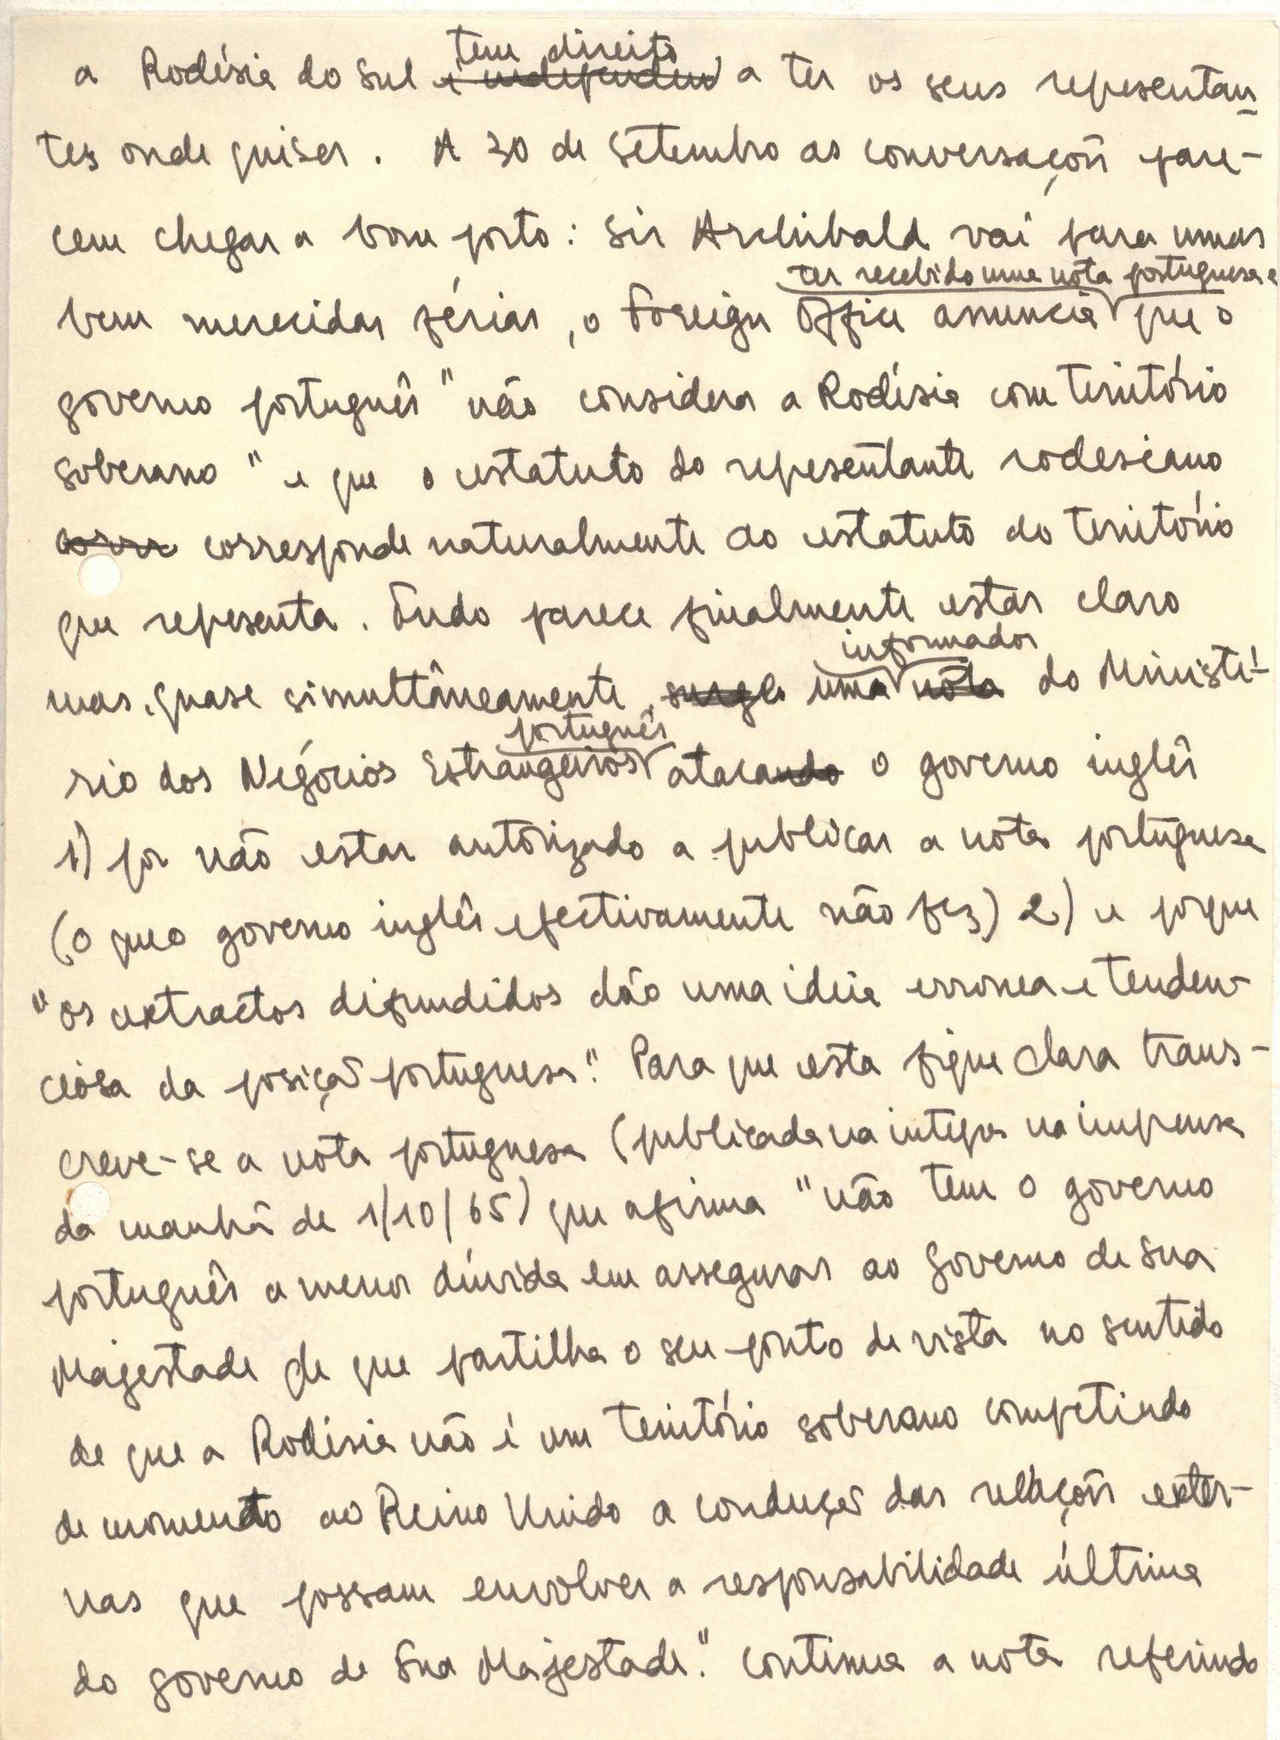 tem direito
a Rodésia do Sul é independen a ter os seus representan-
tes onde quiser. A 30 de Setembro as conversações pare-
cem chegar a bom porto: Sir Archibald vai para umas
ter recebido uma nota portuguesa e
bem merecidas férias, o Foreign Office anuncia que o
governo português "não considera a Rodésia com território
soberano" e que o estatuto do representante rodesiano
corresponde naturalmente ao estatuto do território
que representa. Tudo parece finalmente estar claro
informador
mas, quase simultâneamente, surge uma nota do Ministé-
português
rio dos Negócios Estrangeiros atacando o governo inglês
1) por não estar autorizado a publicar a nota portuguesa
(o que o governo inglês efectivamente não fez) 2) e porque
"os extractos difundidos dão uma ideia erronea e tenden-
ciosa da posição portuguesa". Para que esta fique clara trans-
creve-se a nota portuguesa (publicada na integra na imprensa
da manhã de 1/10/65) que afirma "não tem o governo
português a menor dúvida em assegurar ao governo de Sua
Majestade de que partilha o seu ponto de vista no sentido
de que a Rodésia não é um território soberano competindo
de momento ao Reino Unido a condução das relações exter-
nas que possam envolver a responsabilidade última
do governo de Sua Majestade". Continua a nota referindo